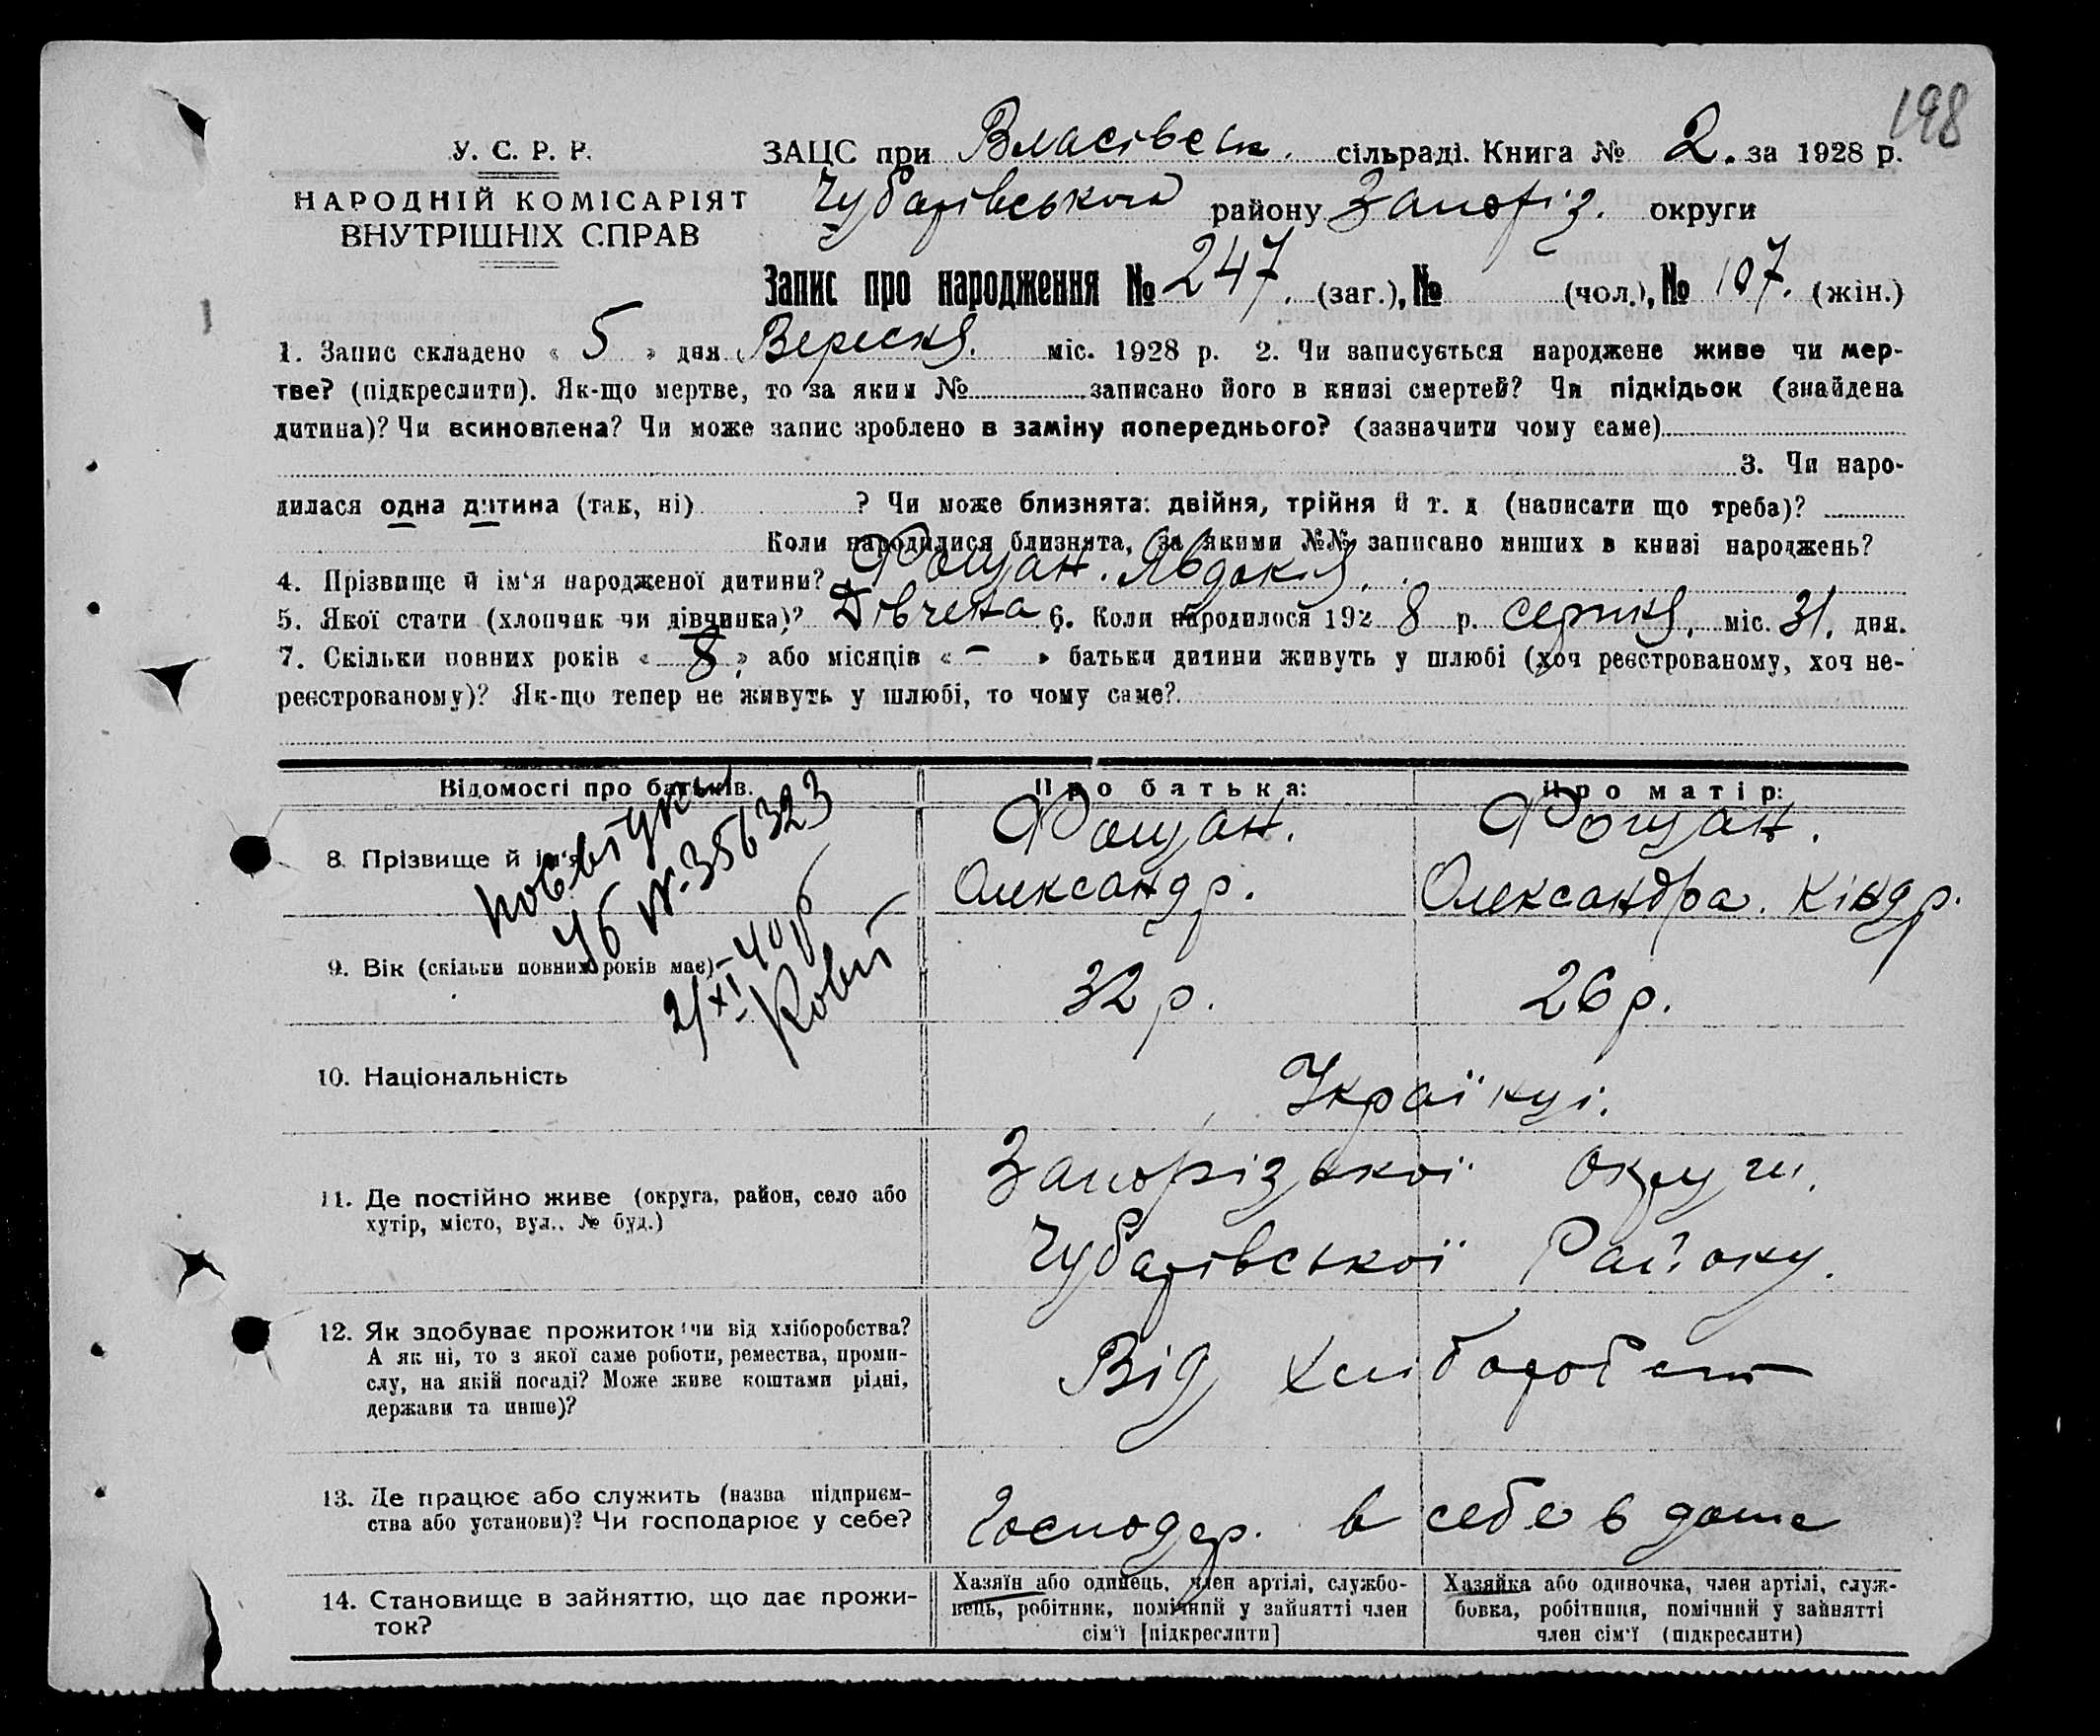 198
У. С. Р. Р.
НАРОДНІЙ КОМІСАРІЯТ
ВНУТРІШНІХ СПРАВ
ЗАЦС при Власівськ. сільраді. Книга № 2. за 1928 р.
Чубарівського району Запоріз. округи
Запис про народження № 247. (заг.), № (чол.), № 107. (жін.)
1. Запис складено « 5 » дня Вересня. міс. 1928 р. 2. Чи записується народжене живе чи мер-
тве? (підкреслити). Як-що мертве, то за яким № записано його в книзі смертей? Чи підкідьок (знайдена
дитина)? Чи всиновлена? Чи може запис зроблено в заміну попереднього? (зазначити чому саме)
3. Чи наро-
дилася одна дитина (так, ні) ? Чи може близнята: двійня, трійня й т. д (написати що треба)?
Коли народилися близнята, за якими №№ записано инших в книзі народжень?
4. Прізвище й ім‘я народженої дитини? Фощан. Явдокія.
5. Якої стати (хлопчик чи дівчинка)? Дівчена 6. Коли народилося 1928 р. серпня, міс. 31. дня.
7. Скільки повних років « 8 » або місяців « - » батьки дитини живуть у шлюбі (хоч реєстрованому, хоч не-
реєстрованому)? Як-що тепер не живуть у шлюбі, то чому саме?
Відомості про батьків. Про батька: Про матір:
8. Прізвище й ім‘я Фощан. Олександр. Фощан. Олександра. Кіндр.
№ 356323
9. Вік (скільки повних років має) 32 р. 26 р.
10. Національність Українці.
11. Де постійно живе (округа, район, село або
хутір, місто, вул., № буд.)
Запорізької округи.
Чубарівської Району.
12. Як здобуває прожиток: чи від хліборобства?
А як ні, то з якої саме роботи, ремества, проми-
слу, на якій посаді? Може живе коштами рідні,
держави та инше)?
Від хліборобст
13. Де працює або служить (назва підприєм-
ства або установи)? Чи господарює у себе?
Господар. в себе в доме
14. Становище в зайняттю, що дає прожи-
ток?
Хазяїн або одинець, член артілі, службо-
вець, робітник, помічний у зайнятті член
сім‘ї [підкреслити]
Хазяйка або одиночка, член артілі, служ-
бовка, робітниця, помічний у зайнятті
член сім‘ї (підкреслити)